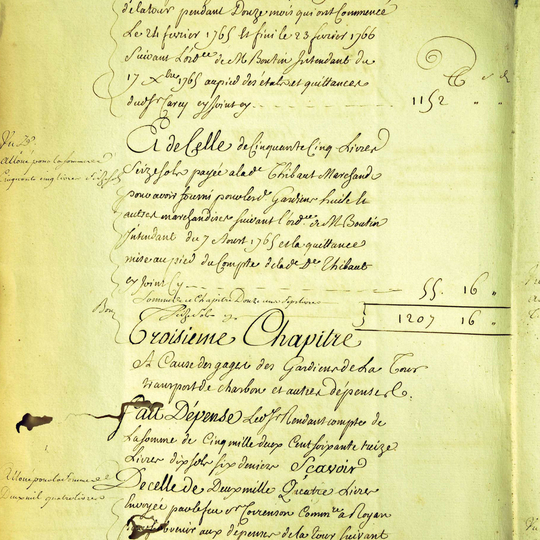 de la tour pendant Douze mois qui ont Commencé
Le 24 fevrier 1765 et fini le 23 fevrier 1766
Suivant L'ord.ce de M Boutin Intendant du
17 Xbre 1765 au pied des états et quittances
dud. Sr Carey cy Joint cy 1152 " "
Vu
Alloué pour la somme de
Cinquante cinq livres Seize sols
Et de Celle de Cinquante Cinq Livres
Seize sols payée a la de Thibaut Marchand
pour avoir fourni pour led. Gardiens huile et
autres marchandises suivant l'ord.ce de M Boutin
Intendant du 7 Aoust 1765 et la quittance
mise au pied du Compte de la de De Thibaut
cy Joint Cy 55 16 "
Bon
Somme ce Chapitre Douze cens Sept livres
Seize Sols cy 1207 16 "
Troisieme Chapitre
A Cause des gages des Gardiens de La Tour
transport de charbon et autres dépenses.
Fait Dépense Led. Sr Rendant compte de
La somme de Cinq mille deux Cent soixante treize
Livres dix sols six deniers Scavoir
Alloué pour la somme de
Deux mil quatre livres
De celle de Deux mille Quatre Livres
Envoyée par le feu Sr Torrenson Comm.re a Royan
Subvenir aux dépenses de la tour suivant